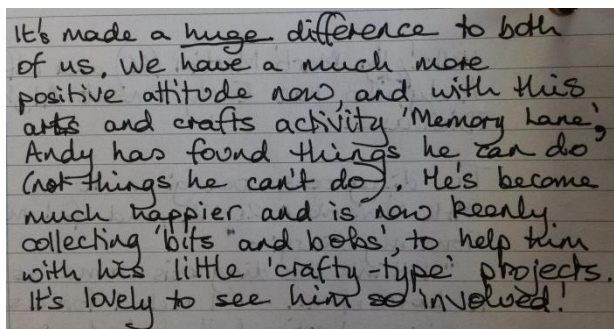 It's made a huge difference to both
of us. We have a much more
positive attitude now, and with this
arts and crafts activity 'Memory Lane',
Andy has found things he can do
(not things he can't do). He's become
much happier and is now keenly
collecting 'bits "and bobs', to help him
with his little 'crafty-type' projects.
It's lovely to see him so involved!